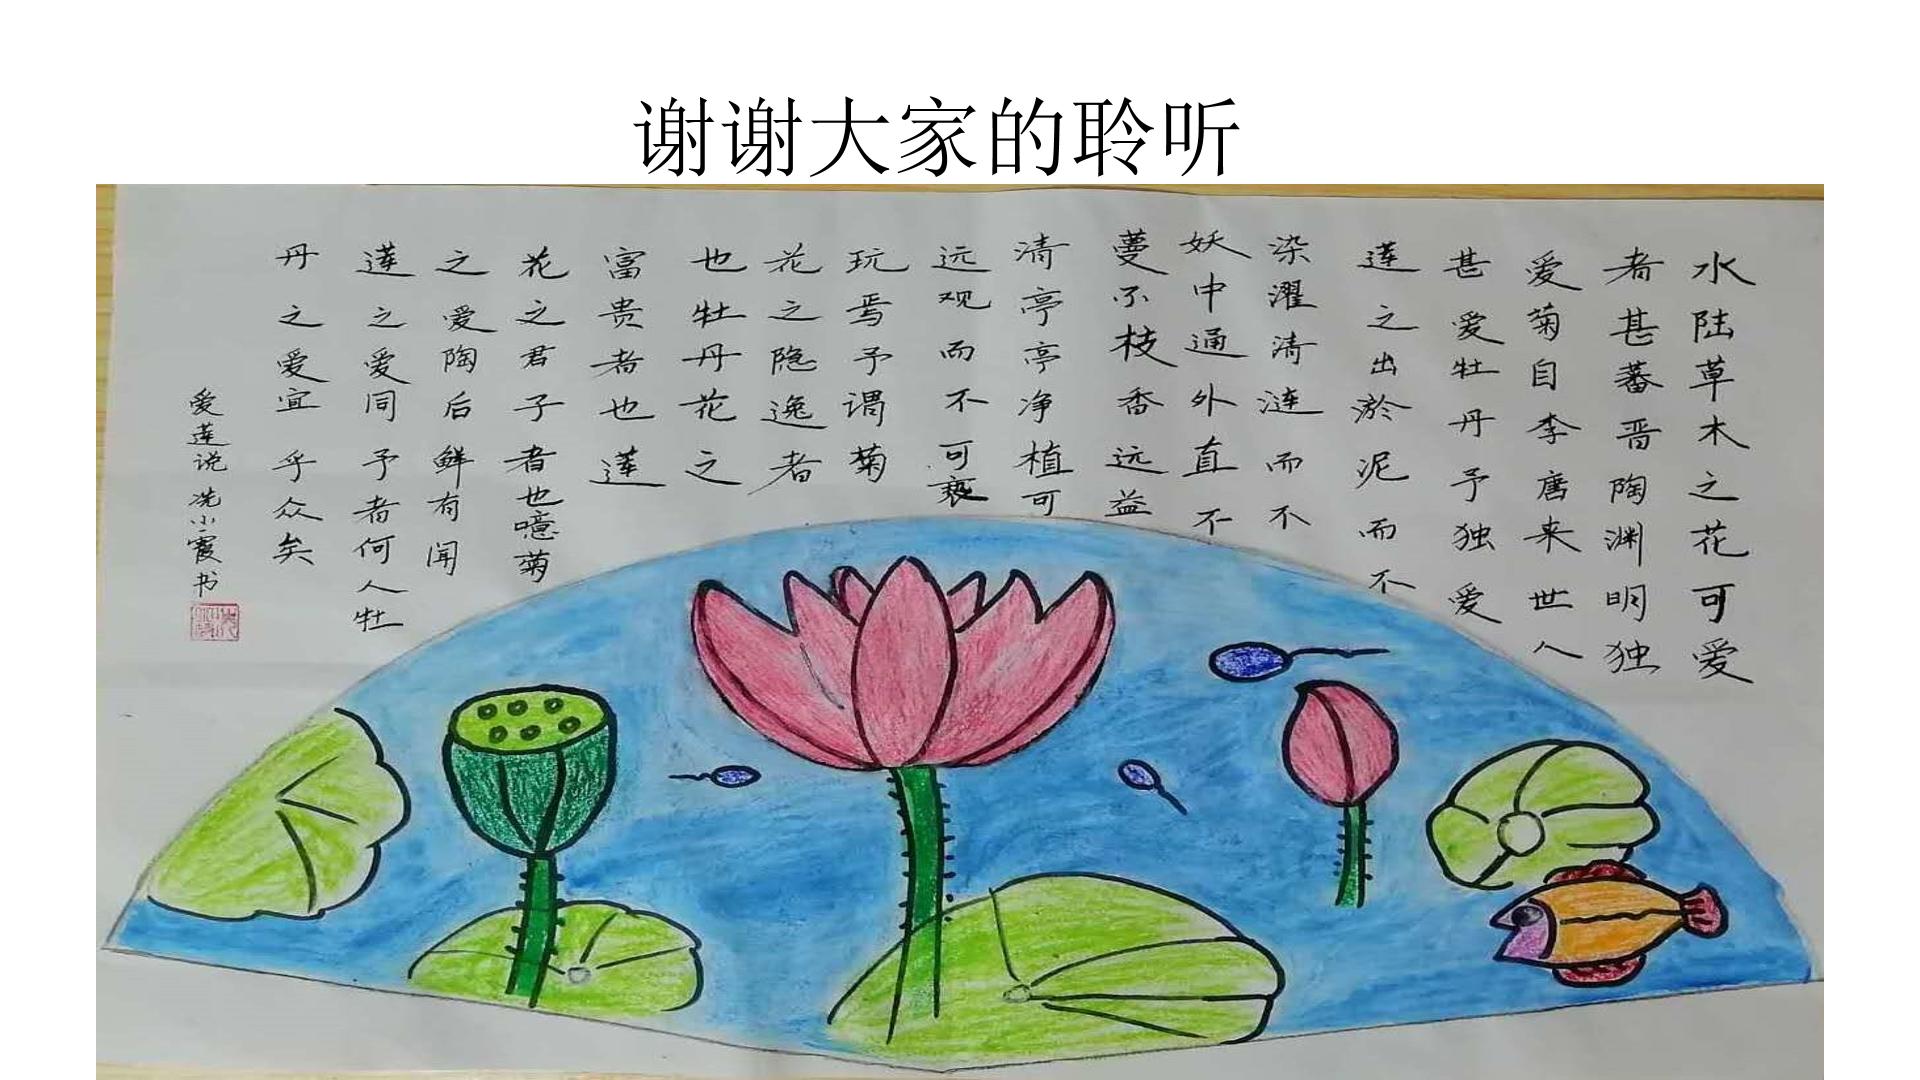 谢谢大家的聆听
水陆草木之花可爱
者甚蕃晋陶渊明独
爱菊自李唐来世人
甚爱牡丹予独爱
莲之出淤泥而不
染濯清涟而不
妖中通外直不
蔓不枝香远益
清亭亭净植可
远观而不可亵
玩焉予谓菊
花之隐逸者
也牡丹花之
富贵者也莲
花之君子者也噫菊
之爱陶后鲜有闻
莲之爱同予者何人牡
丹之爱宜乎众矣
爱莲说 冼小霞书